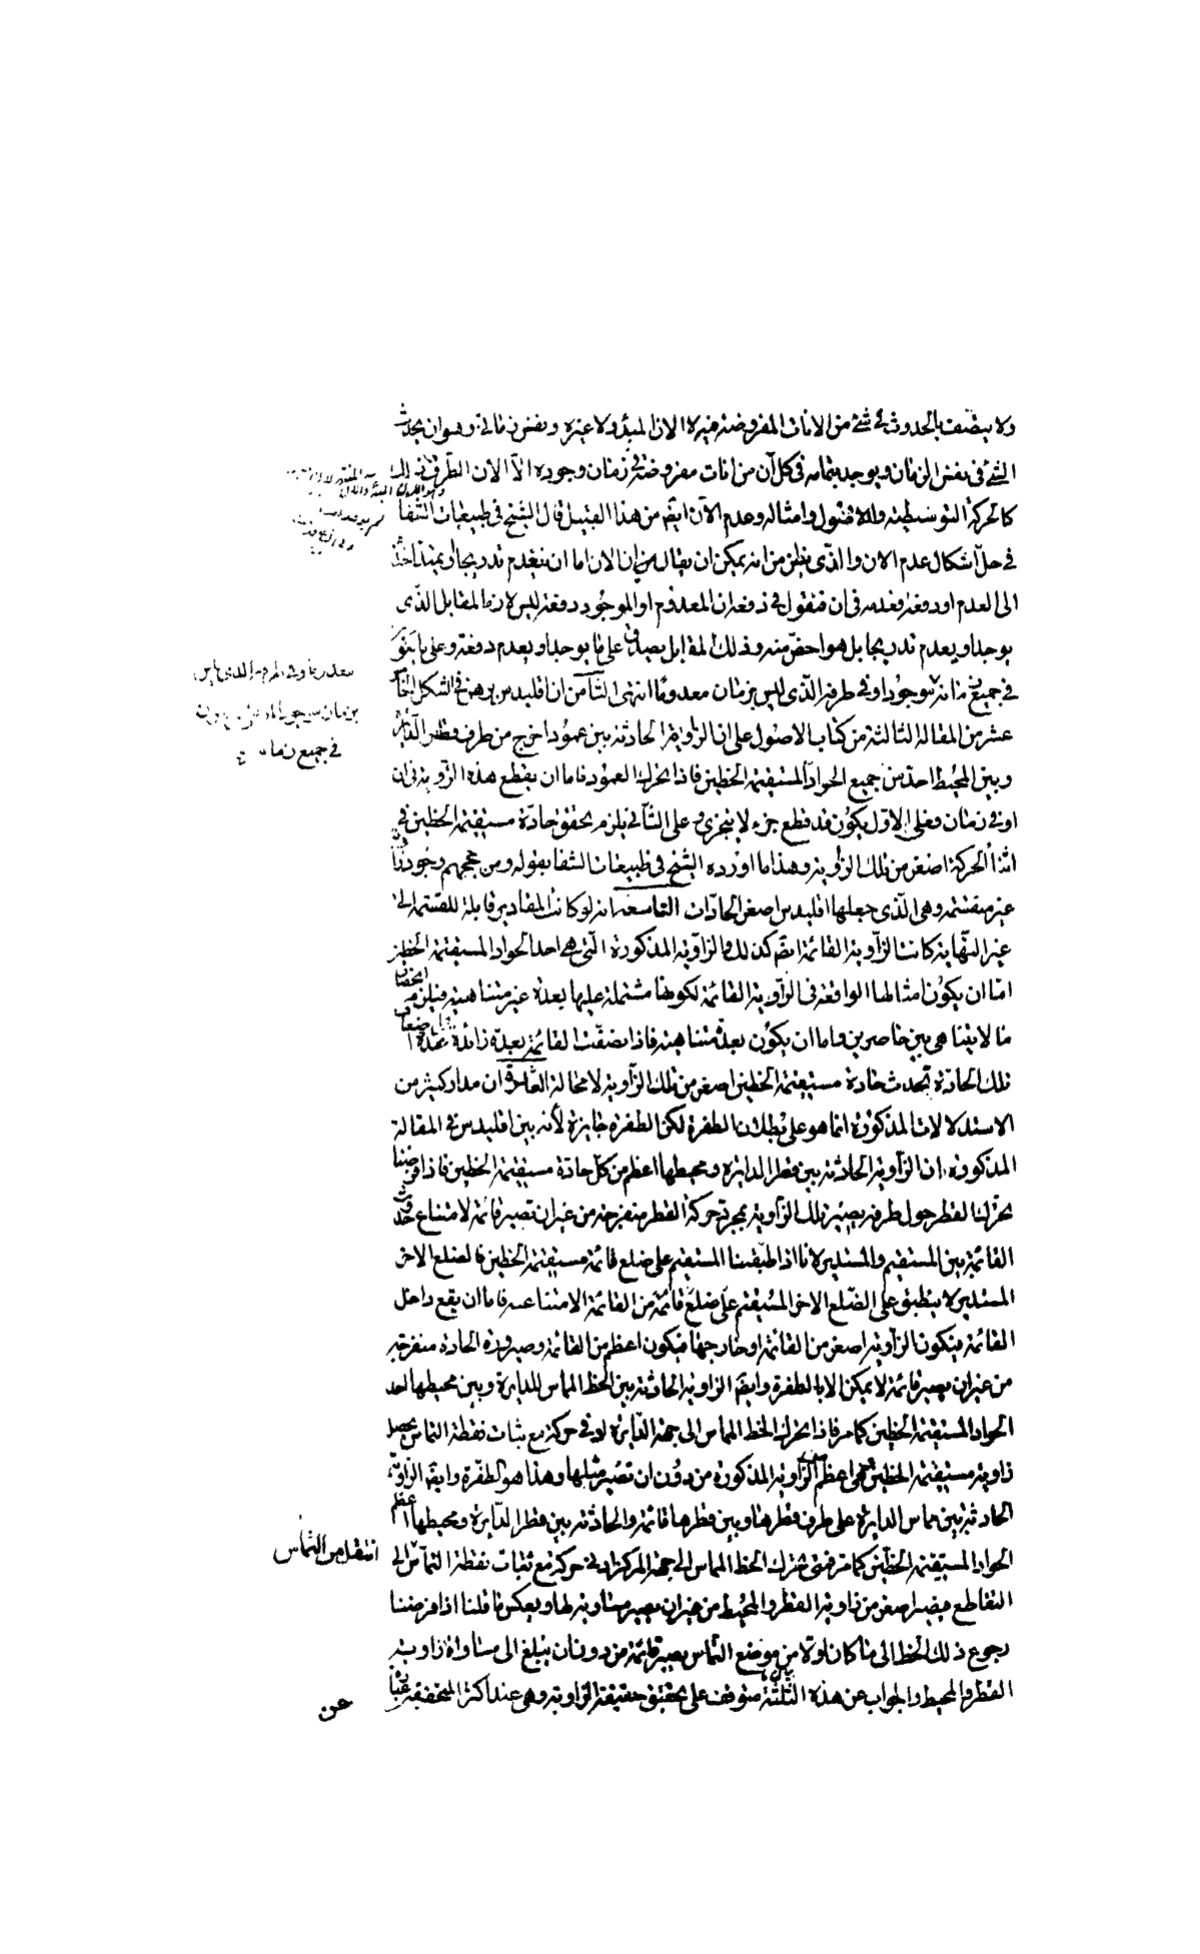 ولا يتصف بالحدوث في شئ من الانات المفروضة فيه لا الان المبدؤ ولا غيره ونفس زمانى وهو ان يحدث
الشئ فى نفس الزمان ويوجد بتمامه فى كل آن من انات مفروضة فى زمان وجوده الا الان الطرف
كالحركة التوسطية وامثاله وعدم الآن ايضم من هذا القبيل قال الشيخ فى طبيعيات الشفا
فى حل اشكال عدم الان والذى يظن من انه يمكن ان يقال من ان الان اما ان ينعدم تدريجا
الى العدم او دفعة فعدمه فى ان فنقول فى دفعه ان المعدوم او الموجود دفعة ليس لازما لمقابل الذى
يوجد او يعدم تدريجا بل هو اخص منه وذلك المقابل يصدق على ما يوجد او يعدم دفعة وعلى ما يكون
فى جميع زمانه موجودا وفى طرفه الذى ليس بزمان معدوما انتهى الثامن ان اقليدس برهن فى الشكل الخامس
عشر من المقالة الثالثة من كتاب الاصول على ان الزاوية الحادثة بين عمود اخرج من طرف قطر الدايرة
وبين المحيط احد من جميع الحواد المستقيمة الخطين فاذا تحرك العمود فاما ان يقطع هذه الزوية فى ان
او فى زمان وفعلى الاول يكون قد قطع جزء لا يتجزى وعلى الثانى يلزم تحقق حادة مستقيمة الخطين فى
اثناء الحركة اصغر من تلك الزاوية وهذا ما اورده الشيخ فى طبيعيات الشفا بقوله ومن حججهم وجود زاوية
غير منقسمة وهى الذى جعلها اقليدس اصغر الحادات التاسعة انه لو كانت المقادير قابلة للقسمة الى
غير النهاية كانت الزاوية القائمة ايضم كذلك والزاوية المذكورة التى هى احد الحواد المستقيمة الخطين
اما ان يكون امثالها الواقعة فى الزاوية القائمة لكونها مشتملة عليها بعدة غير متناهية فيلزم انحصار
ما لا يتناهى بين حاصرين واما ان يكون بعدة متناهية فاذا نصفت القائمة بعدة زائدة عدة اضعاف
تلك الحادة تحدث حادة مستقيمة الخطين اصغر من تلك الزاوية لا محالة العاشرة ان مدار كثير من
الاستدلالات المذكورة انما هو على بطلان الطفرة لكن الطفرة جايزة لأنه بين اقليدس فى المقالة
المذكورة ان الزاوية الحادثة بين قطر الدايرة ومحيطها اعظم من كل حادة مستقيمة الخطين فاذا فرضنا
تحرك القطر حول طرفه يصير تلك الزاوية بمجرد حركة القطر منفرجة من غير ان تصير قائمة لامتناع حدوث
القائمة بين المستقيم والمستدير لانا اذا طبقنا المستقيم على ضلع قائمة مستقيمة الخطين فالضلع الاخر
المستدير لا ينطبق على الضلع الاخر المستقيم على ضلع قائمة من القائمة لامتناعه فاما ان يقع داخل
القائمة فيكون الزاوية اصغر من القائمة او خارجها فيكون اعظم من القائمة وصيرورة الحادة منفرجة
من غير ان يصير قائمة لا يمكن الا بالطفرة وايضم الزاوية الحادثة بين الخط المماس للدايرة وبين محيطها احد
الحواد المستقيمة الخطين كما مر فاذا تحرك الخط المماس الى جهة الدايرة ادنى حركة مع ثبات نقطة التماس يحصل
زاوية مستقيمة الخطين هى اعظم من الزاوية المذكورة من دون ان تصير مثلها وهذا هو الطفرة وايضم الزاوية
الحادثة بين مماس الدايرة على طرف قطرها وبين قطرها قائمة والحادثة بين قطر الدايرة ومحيطها اعظم
الحواد المستقيمة الخطين كما مر فمتى تحرك الخط المماس الى جهة المركز ادنى حركة مع ثبات نقطة التماس الى
انتقل من التماس
التقاطع فيصير اصغر من زاوية القطر والمحيط من غير ان يصير مساوية لها وبعكس ما قلنا اذا فرضنا
رجوع ذلك الخط الى ما كان اولا من موضع التماس يصير قائمة من دون ان يبلغ الى مساواة زاوية
القطر والمحيط والجواب عن هذه الثلثة متوقف على تحقيق حقيقة الزاوية وهى عند اكثر المحققين عبارة
عن